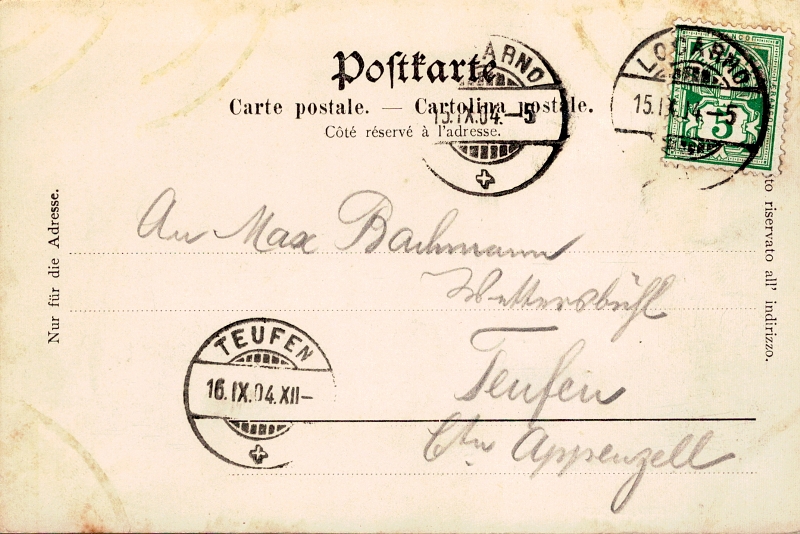 Postkarte
Carte postale. — Cartolina postale.
Côté réservé à l'adresse.
ARNO
15.IX.04.–5
LOCARNO
15.IX.04–5
5
FRANCO
Nur für die Adresse.
to riservato all' indirizzo.
An Max Bachmann
Wettersbühl
Teufen
Ctn Appenzell
TEUFEN
16.IX.04.XII–